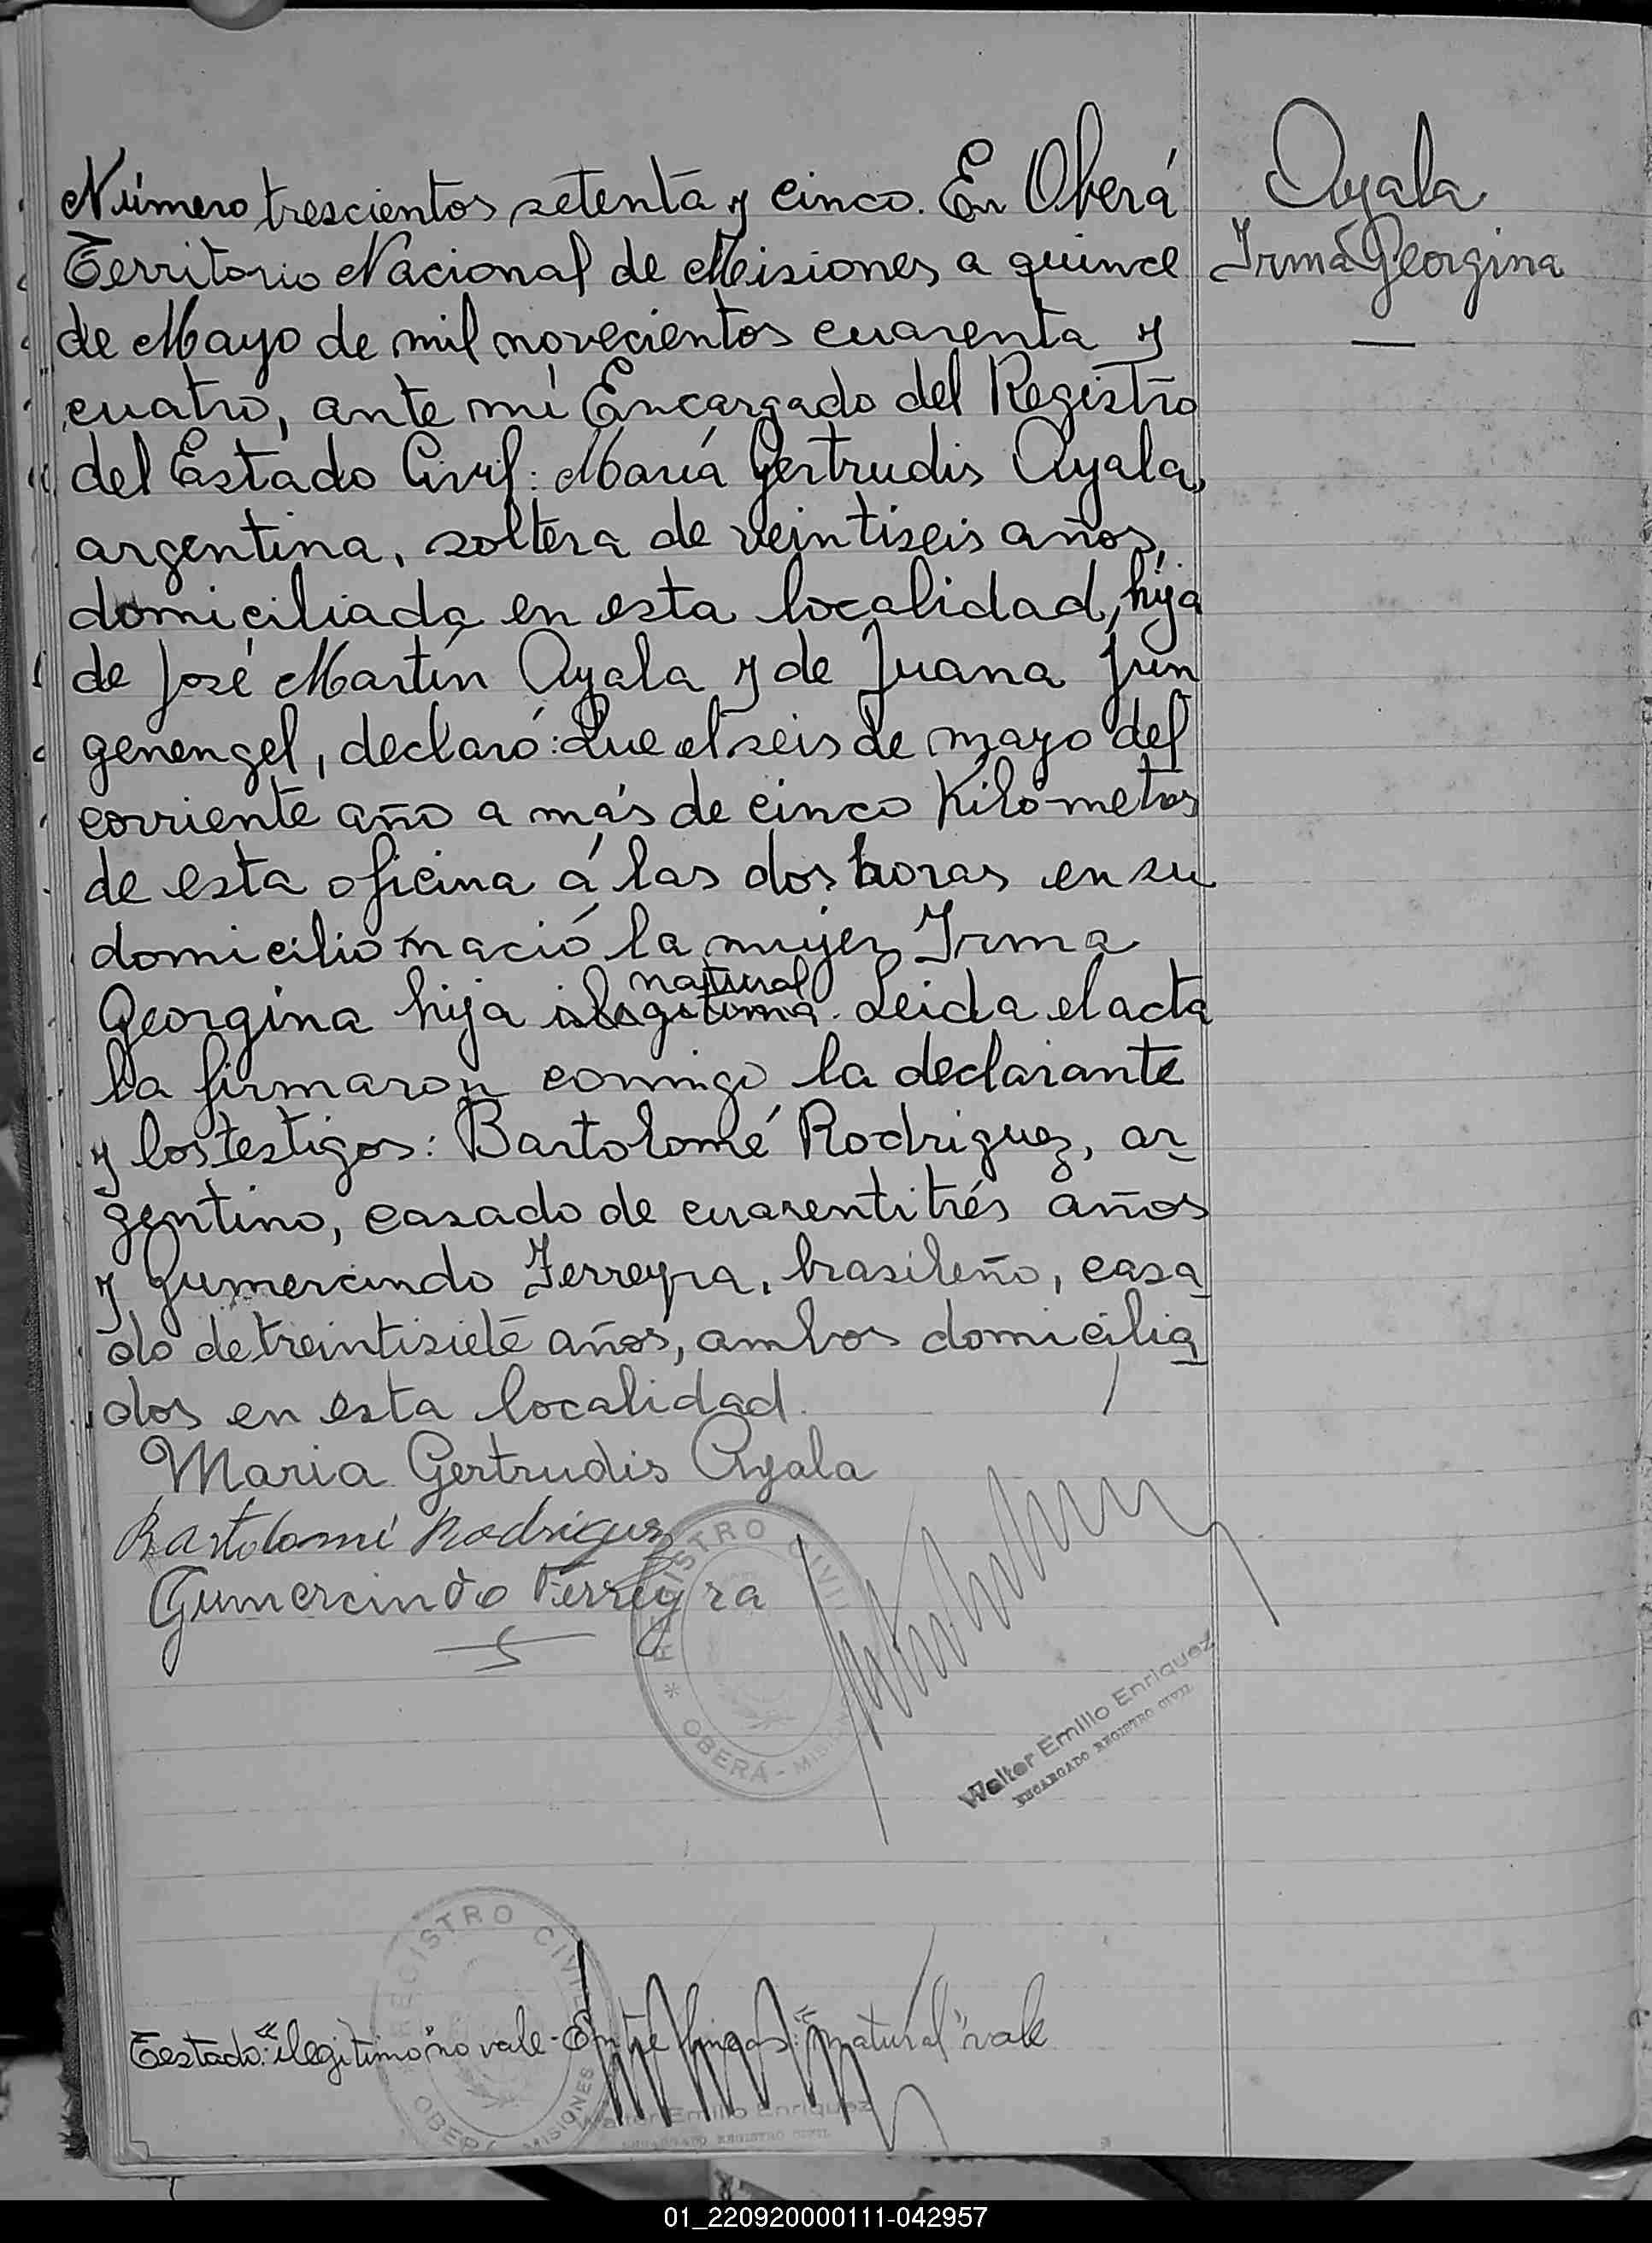 Número trescientos setenta y cinco. En Oberá
Territorio Nacional de Misiones a quince
de Mayo de mil novecientos cuarenta y
cuatro, ante mí Encargado del Registro
del Estado Civil: María Gertrudis Ayala,
argentina, soltera de veintiseis años,
domiciliada en esta localidad, hija
de José Martín Ayala y de Juana Jun
genengel, declaró: Que el seis de mayo del
corriente año a más de cinco Kilómetros
de esta oficina á las dos horas en su
domicilio nació la mujer Irma
natural
Georgina hija ilegitima. Leida el acta
la firmaron conmigo la declarante
y los testigos: Bartolomé Rodriguez, ar
gentino, casado de cuarentitrés años
y Gumercindo Ferreyra, brasileño, casa
do de treintisiete años, ambos domicilia
dos en esta localidad.
Ayala
Irma Georgina
Maria Gertrudis Ayala
Bartolomé Rodriguez
Gumercindo Ferreyra
REGISTRO CIVIL
OBERÁ - MISIONES
Walter Emilio Enriquez
ENCARGADO REGISTRO CIVIL
REGISTRO CIVIL
OBERÁ MISIONES
Testado: "ilegitimo" no vale - Entre lineas: "natural" vale
Walter Emilio Enriquez
ENCARGADO REGISTRO CIVIL
01_220920000111-042957